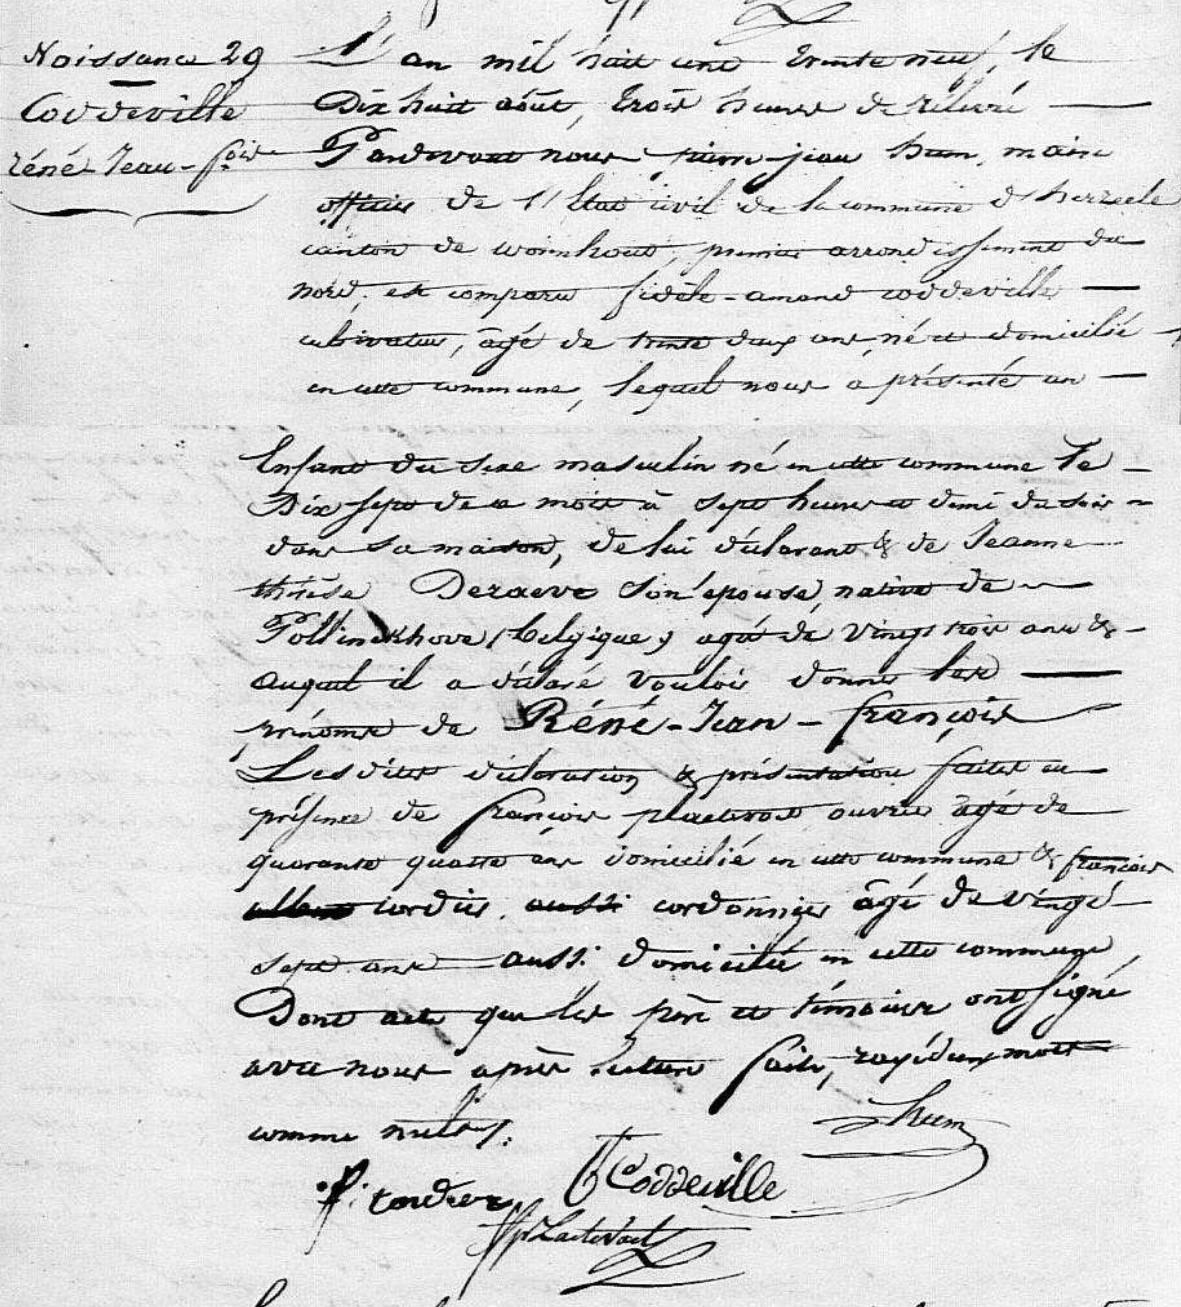 Naissance 29
Coddeville
réné Jean-fois
L'an mil huit cent trente neuf, le
Dix huit août, trois heures de relevé
Pardevant nous pierre-jean huen, maire
officier de l'Etat civil de la commune d'herzeele
canton de wormhout, premier arrondissement du
nord, est comparu fidèle-amand coddeville
cultivateur, âgé de trente deux ans, né et domicilié
en cette commune, lequel nous a présenté un
Enfant du sexe masculin né en cette commune le
Dix sept de ce mois à sept heures et demi du soir
dans sa maison, de lui déclarant & de Jeanne
thérèse Deraeve son épouse, native de
Pollinckhove (belgique) agée de vingt trois ans &
auquel il a déclaré vouloir donner les
prénoms de Réné-Jean-françois
Lesdites déclaration & présentation faites en
présence de françois plaetevoet ouvrier âgé de
quarante quatre ans domicilié en cette commune & françois
cordier, aussi cordonnier âgé de vingt
sept ans aussi domicilié en cette commune,
Dont acte que les père et témoins ont signé
avec nous après lecture faite, rayé deux mots
comme nuls.
huen
f: cordier
Coddeville